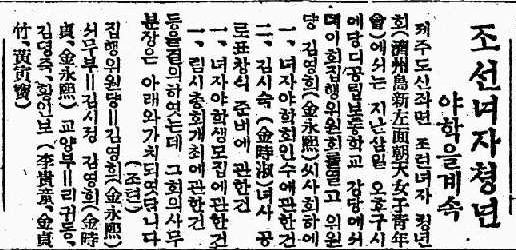 조선녀자청년
야학을계속
제주도신좌면 조텬녀자 청년
회(濟州島新左面朝天女子靑年
會)에서는 지난삼일 오후구시
에당디공립보통학교 강당에서
뎨이회집행위원회를열고 위원
당 김영희(金永熙)씨사회하에
一、녀자야학회인수에관한건
二、김시숙(金時淑)녀사 공
로표창식 준비에 관한건
一、녀자야학생모집에관한건
一、림시총회개최에관한건
등을결의하엿는데 그회의사무
분장은 아래와가치되엿답니다
(조텬)
집행위원댱=김영희(金永熙)
서무부=김시정 김영희(金時
貞、金永熙) 교양부=리귀동、
김뎡죽、황인보 (李貴童、金貞
竹、黃寅寶)